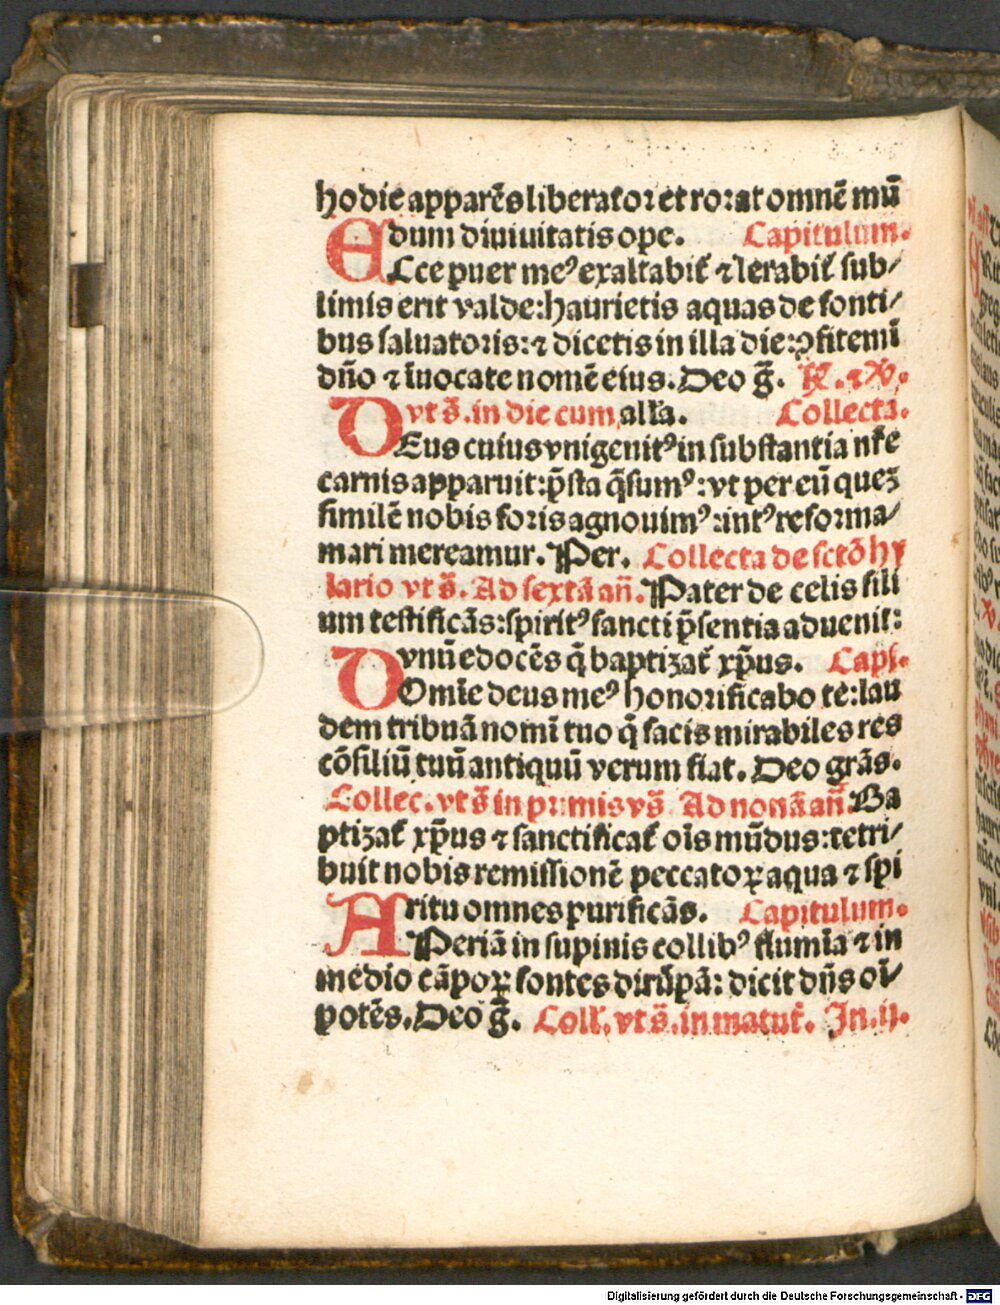 hodie apparēs liberator et rorat omnē mū
dum diuiuitatis ope. Capitulum.
ECce puer meꝰ exaltabit̄ ⁊ lerabit̄ sub/
limis erit valde: haurietis aquas de fonti/
bus saluatoris: ⁊ dicetis in illa die: ꝯfitemī
dn̄o ⁊ īuocate nomē eius. Deo ḡ. ℟. ⁊ ℣.
vt s̄. in die cum alĺa. Collecta.
DEus cuius vnigenitꝰ in substantia nr̄e
carnis apparuit: p̄sta q̄sumꝰ: vt per eū quez
similē nobis foris agnouimꝰ: intꝰ reforma/
mari mereamur. Per. Collecta de sctō hy
lario vt s̄. Ad sextā an̄. Pater de celis fili
um testificās: spiritꝰ sancti p̄sentia aduenit:
vnū edocēs q̄ baptizat̄ xp̄us. Capl.
DOmīe deus meꝰ honorificabo te: lau
dem tribuā nomī tuo q̄ facis mirabiles res
cōsiliū tuū antiquū verum fiat. Deo grās.
Collec. vt s̄ in primis vs̄. Ad nonā an̄. Ba
ptizat̄ xp̄us ⁊ sanctificat̄ oīs mūdus: tetri/
buit nobis remissionē peccatoꝝ aqua ⁊ spi
ritu omnes purificās. Capitulum.
APeriā in supinis collibꝰ flumīa ⁊ in
medio cāpoꝝ fontes dirūpā: dicit dn̄s oī/
potēs. Deo ḡ. Coll̄. vt s̄. in matut̄. In .ij.
Digitalisierung gefördert durch die Deutsche Forschungsgemeinschaft - DFG